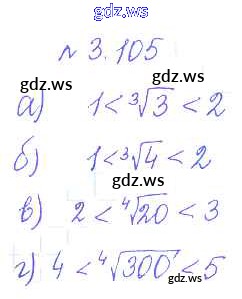 gdz.ws
№ 3.105
gdz.ws gdz.ws
а) 1 < ³√3 < 2
gdz.ws
б) 1 < ³√4 < 2
gdz.ws
в) 2 < ⁴√20 < 3
gdz.ws gdz.ws
г) 4 < ⁴√300 < 5